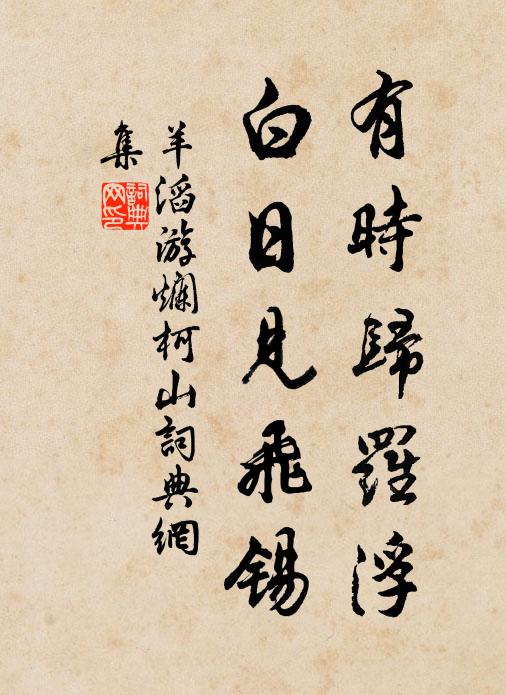 有時歸羅浮
白日見飛錫
羊滔游爛柯山詞典網
集
詞典
网印